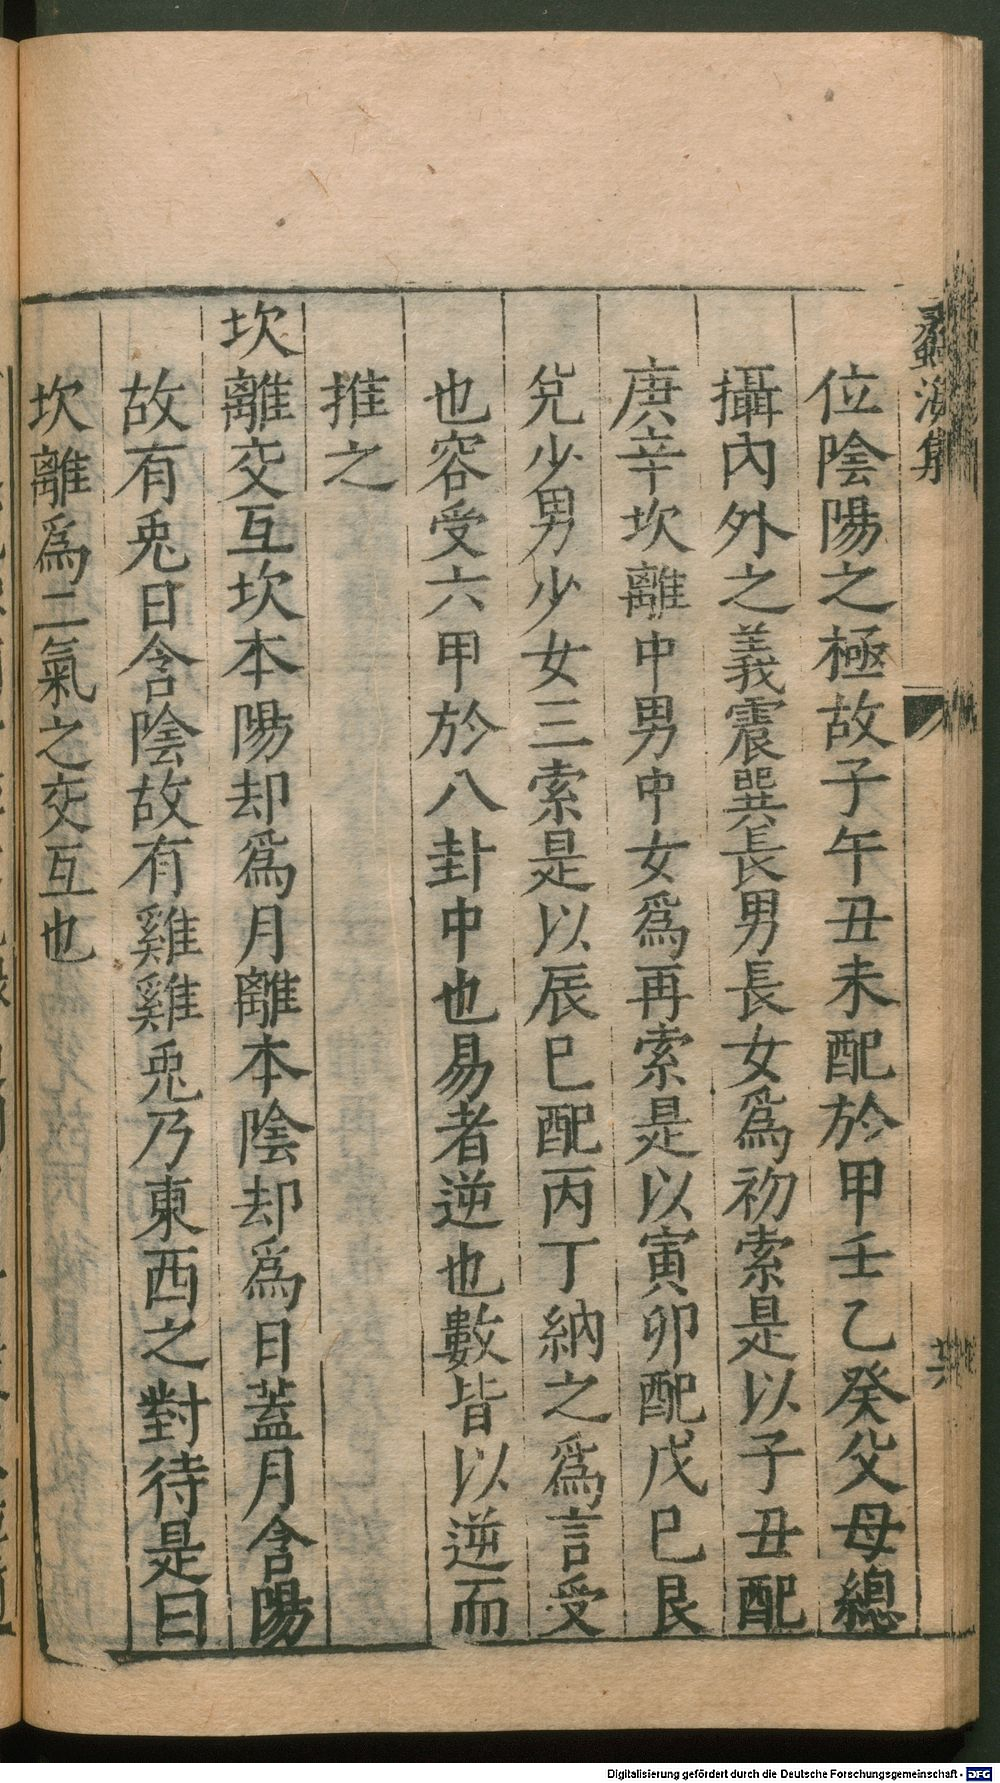 蠡海集
位陰陽之極故子午丑未配於甲壬乙癸父母總
攝內外之義震巽長男長女爲初索是以子丑配
庚辛坎離中男中女爲再索是以寅卯配戊巳艮
兌少男少女三索是以辰巳配丙丁納之爲言受
也容受六甲於八卦中也易者逆也數皆以逆而
推之
坎離交互坎本陽却爲月離本陰却爲日蓋月含陽
故有兎日含陰故有雞雞兎乃東西之對待是曰
坎離爲二氣之交互也
Digitalisierung gefördert durch die Deutsche Forschungsgemeinschaft - DFG